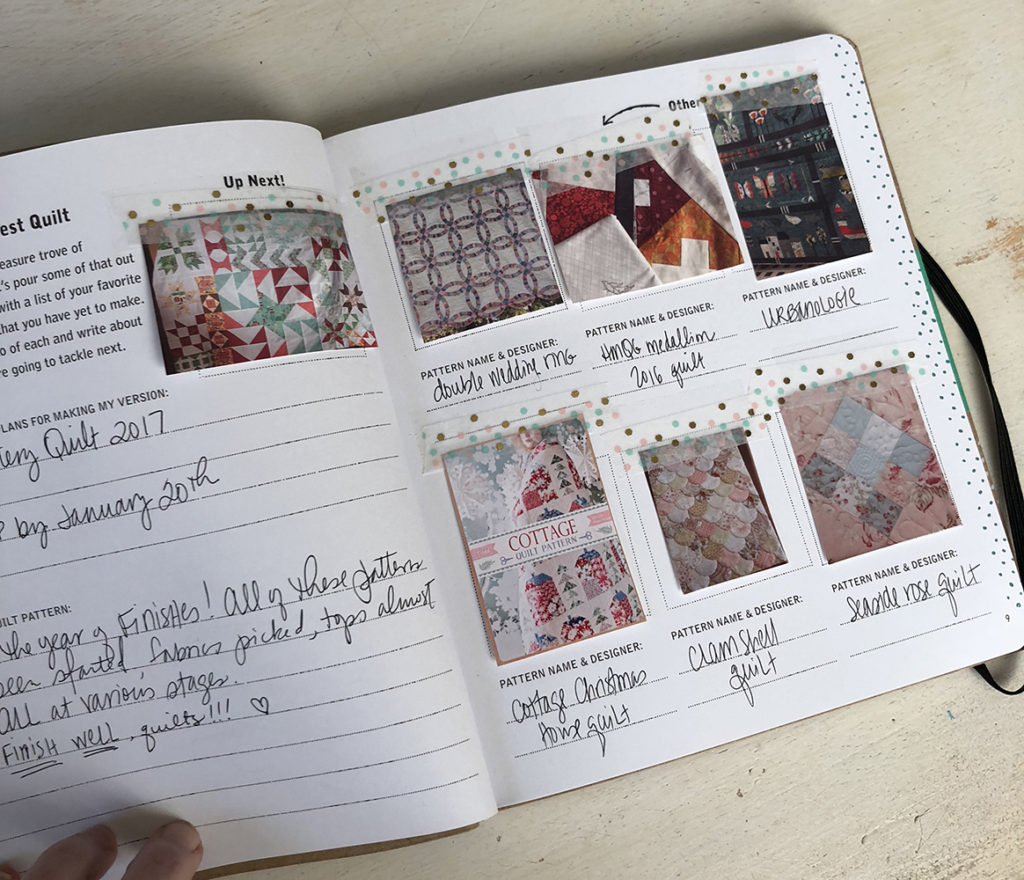 Up Next!
est Quilt
easure trove of
t's pour some of that out
with a list of your favorite
that you have yet to make.
o of each and write about
re going to tackle next.
PLANS FOR MAKING MY VERSION:
Quilt 2017
by January 20th
ILT PATTERN:
the year of Finishes! All of these pattern
been started, fabrics picked, tops almost
all at various stages.
Finish well, quilts!!! ♡
Other
PATTERN NAME & DESIGNER:
double wedding ring
PATTERN NAME & DESIGNER:
HMQG medallion
2016 quilt
PATTERN NAME & DESIGNER:
URBANOLOGIE
COTTAGE
QUILT PATTERN
PATTERN NAME & DESIGNER:
Cottage Christmas
House quilt
PATTERN NAME & DESIGNER:
Clam shell
quilt
PATTERN NAME & DESIGNER:
Seaside rose quilt
9